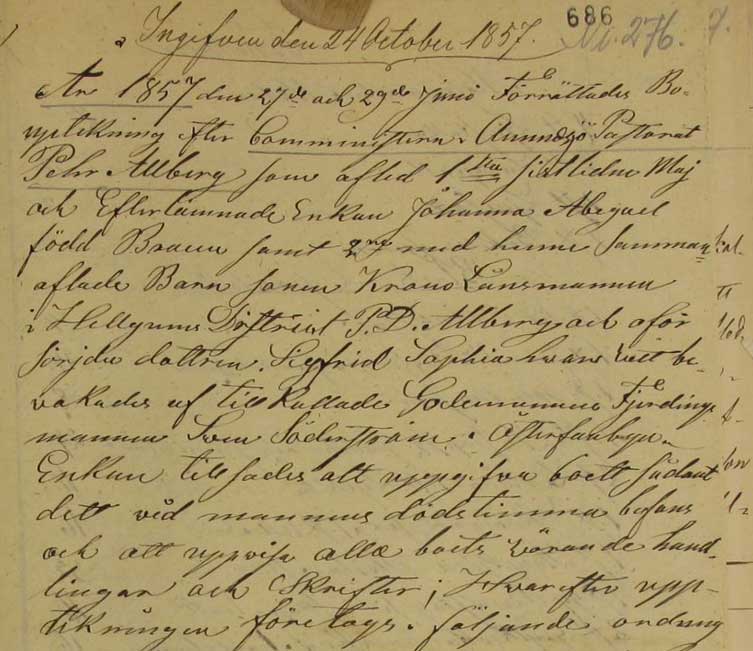 Ingifven den 24 October 1857.
686
No. 276. 7.
År 1857 den 27de och 29de Junii Förrättades Bo-
uptekning efter Comministern i Aumndsjö Pastorat
Pehr Allberg som afled 1sta sistlidne Maj
och Efterlämnade Enkan Johanna Abegael
född Braun samt 2ne med henne samman
aflade Barn sonen Krono Länsmannen
i Hellgums District P. D. Allberg och aför
sörjda dottren Sigfrid Sophia hvars rätt be-
vakades af tillkallade Godemannen Fjerdings
mannen Sven Söderström i Österfanbyn
Enkan tillsades att uppgifva boett sådant
dett vid mannens dödstimma befans
och att uppvisa alla boets rörande hand-
lingar och Skrifter; Hvarefter upp-
tekningen företogs i följande ordning